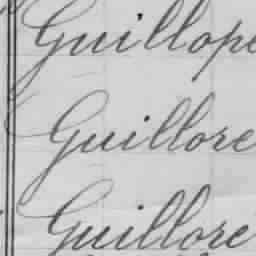 Guillope
Guillore
Guillore